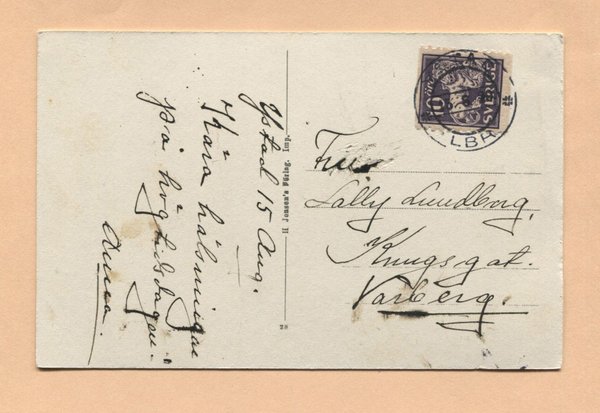 Ystad 15 Aug.
Kära hälsningar
på högtidsdagen.
Anna.
H Jonson's Förlag. Imp.
10
SVERIGE
LBR
Fru
Sally Lundborg,
Kungsgat.
Varberg.